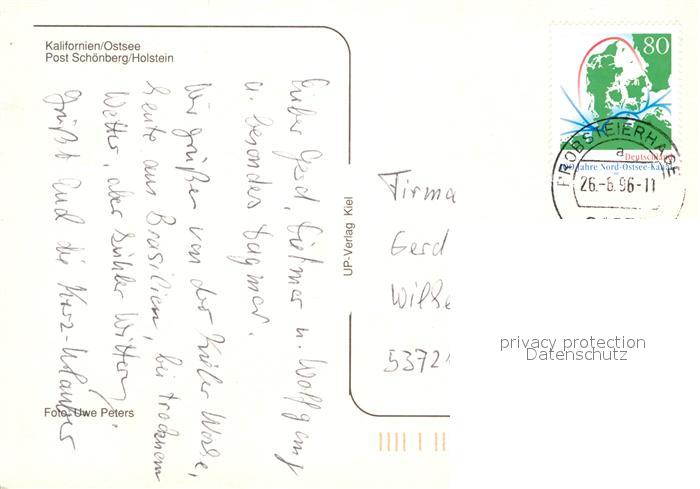 Kalifornien/Ostsee
Post Schönberg/Holstein
Lieber Gerd, Dietmar u. Wolfgang
u. besonders Dagmar.
Wir grüßen von der Kieler Woche,
heute aus Brasilien, bei trockenem
Wetter, aber kühler Witterung.
Grüßt Euch die Kurz-Urlauber
Foto: Uwe Peters
UP-Verlag Kiel
80
Deutschland
Jahre Nord-Ostsee-Kanal
PROBSTEIERHAGE
a
26.-6.96-11
Firma
Gerd
53721
privacy protection
Datenschutz